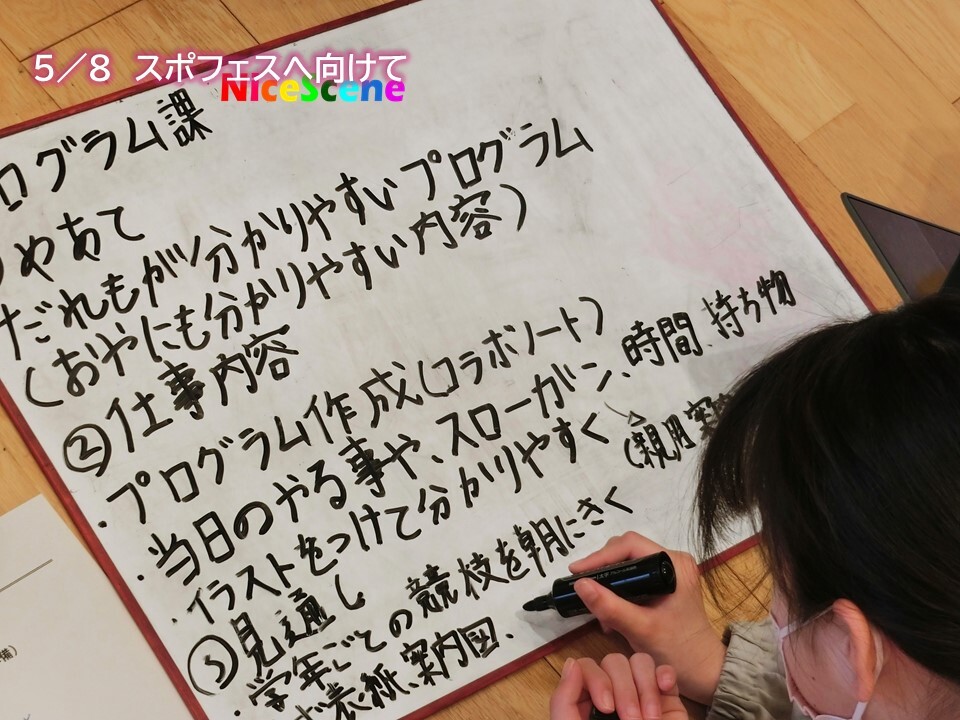 5/8 スポフェスへ向けて
NiceScene
ログラム課
めあて
だれもが分かりやすいプログラム
(おやにも分かりやすい内容)
②仕事内容
・プログラム作成(コラボノート)
・当日のやる事や、スローガン、時間、持ち物
・イラストをつけて分かりやすく
(親用案
③見通し
・学年ごとの競技を朝にきく
表紙、案内図、
備)